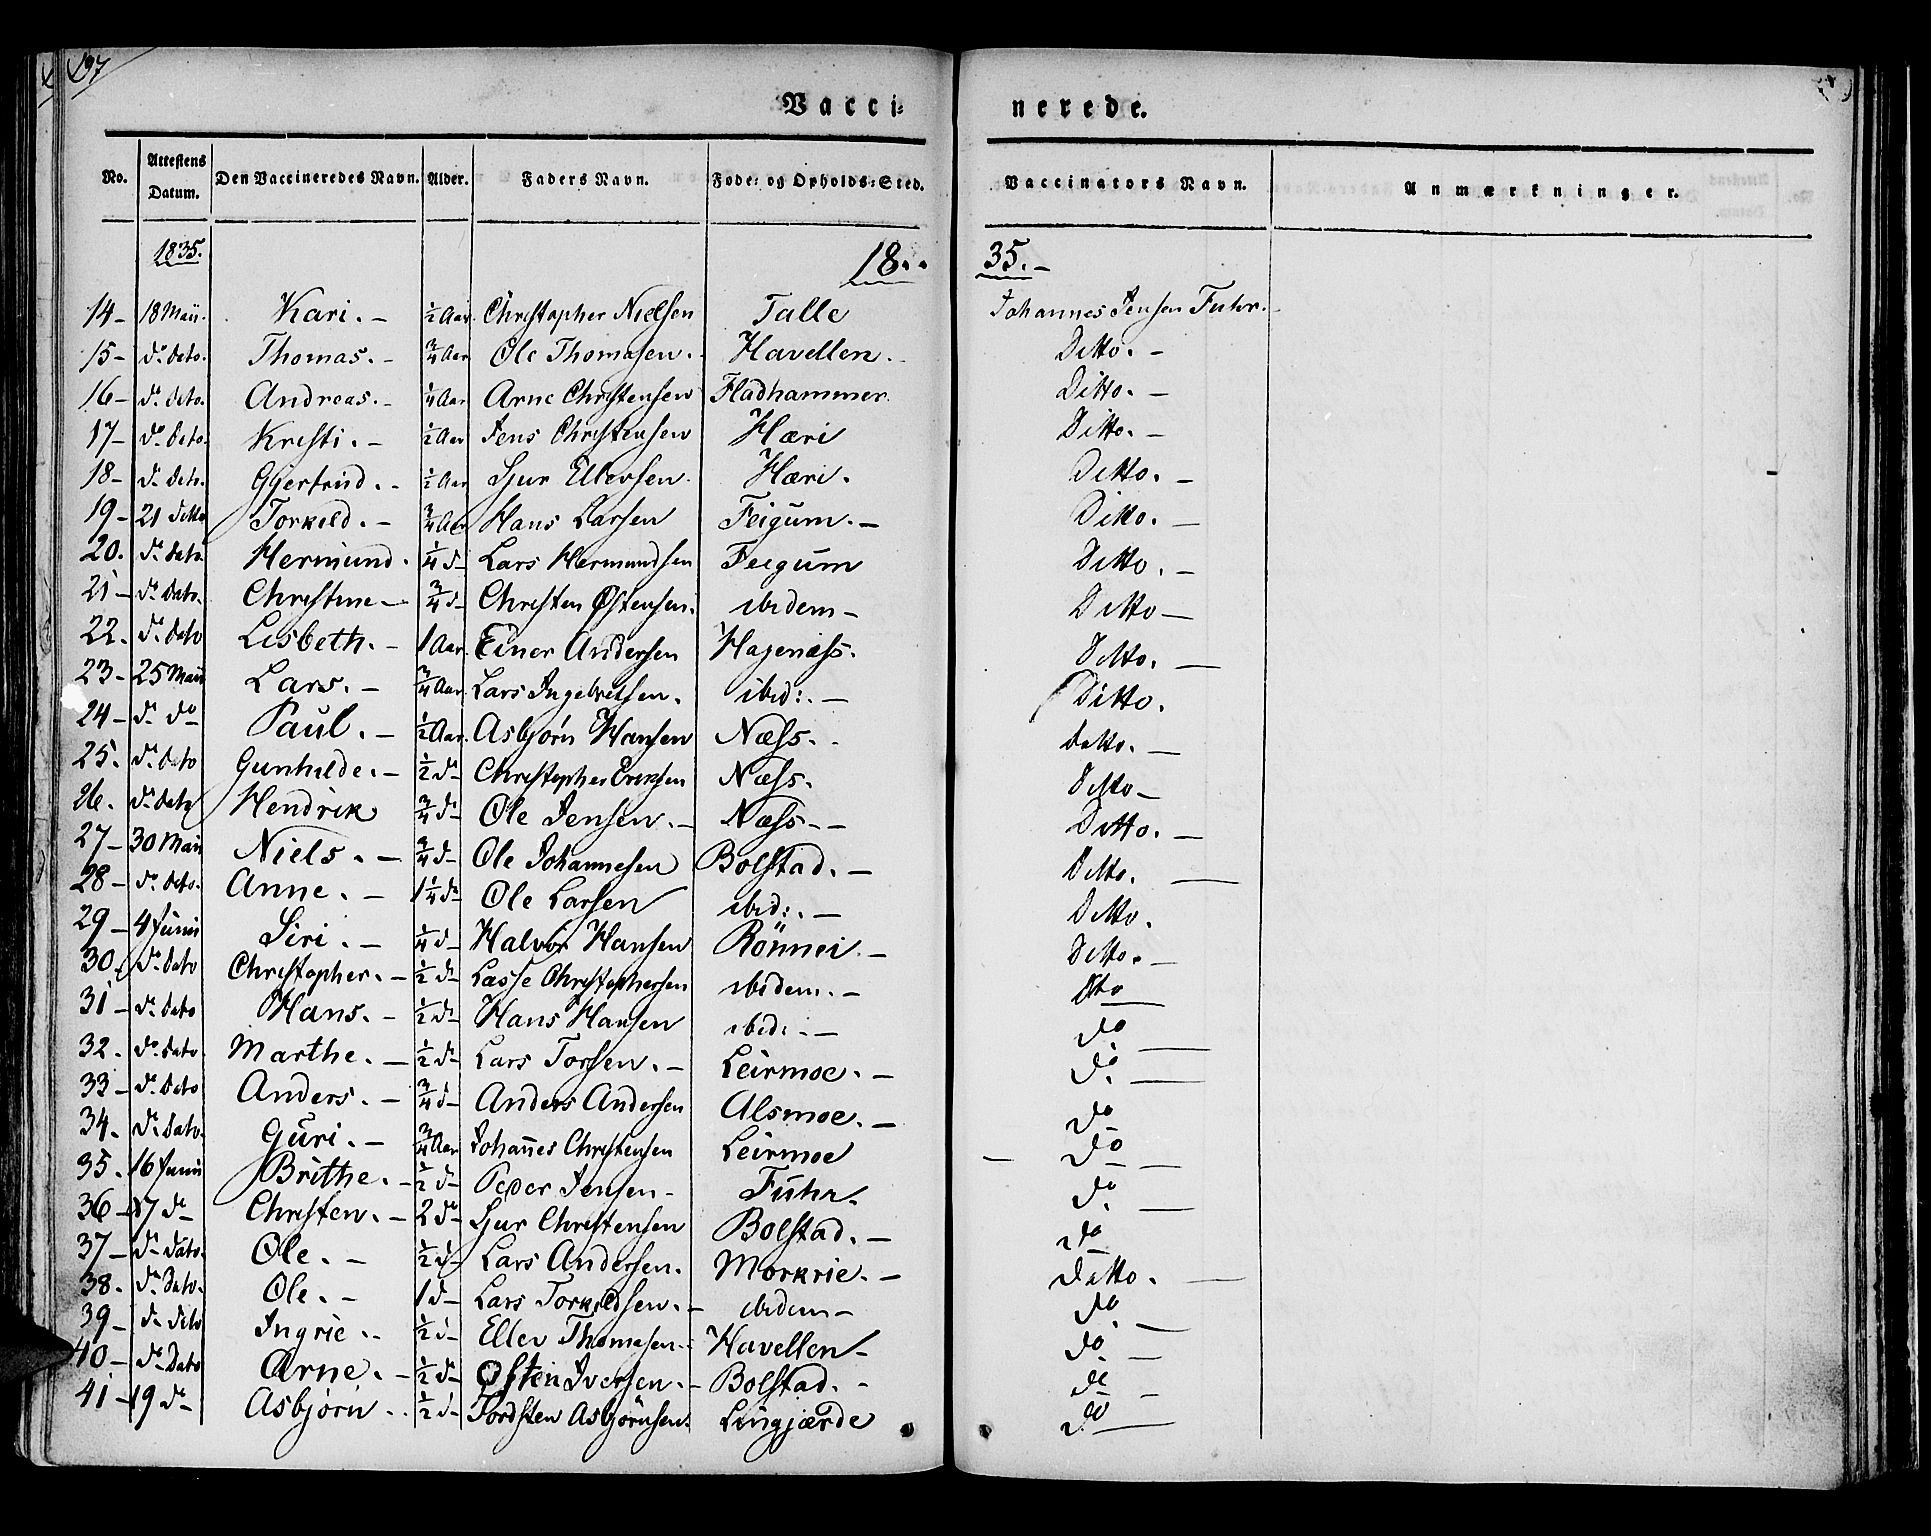 197
Vacci-
nerede.
No. Attestens Datum. Den Vaccineredes Navn. Alder. Faders Navn. Føde- og Opholds-Sted. Vaccinators Navn. Anmærkninger.
1835. 18.. 35.-
14- 18 Maii. Kari.- ½ Aar. Christopher Nielsen Talle Johannes Jensen Fuhr.-
15- do dato. Thomas.- ¾ Aar Ole Thomasen. Havellen. Ditto.-
16- do dato. Andreas.- ¼ Aar. Arne Christensen Fladhammer. Ditto.-
17- do dato. Kristi.- ½ Aar Jens Christensen Hæri Ditto.-
18- do dato. Gjertrud.- ½ Aar Sjur Ellersen. Hæri. Ditto.-
19- 21 ditto Torkeld.- ¾ Aar Hans Larsen Feigum.- Ditto.-
20. do dato. Hermund. ¼ do Lars Hermundsen Feigum Ditto.-
21- do dato. Christine- ¾ do Christen Østensen. ibidem- Ditto-
22. do dato Lisbeth.- 1 Aar. Einer Andersen Hagenæss. Ditto.-
23- 25 Maii Lars.- ¾ Aar. Lars Ingebretsen. ibid:.- Ditto.
24- do do Paul.- ½ Aar. Asbjørn Hansen Næss. Datto.-
25. do dato Gunhilde.- ½ do Christopher Ericksen Næss. Ditto-
26. do dato Hendrik ¾ do Ole Jensen.- Næss.- Ditto.-
27- 30 Maii Niels.- ¾ do Ole Johannesen Bolstad.- Ditto.-
28- do dato. Anne.- 1¼ do Ole Larsen ibid:.- Ditto.
29- 4 Junii Siri.- ¼ do Halvor Hansen Rönnei.- Ditto.-
30. do dato Christopher.- ½ do Lasse Christophersen ibidem.- Dto
31- do dato Hans.- ½ do Hans Hansen ibid:.- do
32. do dato. Marthe.- ½ do Lars Torsen.- Leirmoe.- do.
33- do dato Anders.- ¾ do Anders Andersen Alsmoe.- do
34. do dato. Guri.- ¾ Aar Johannes Christensen Leirmoe do
35. 16 Junii Brithe.- ½ do Peder Jensen- Fuhr. do.
36- 17 do Christen.- 2 do Sjur Christensen Bolstad.- do
37- do dato. Ole.- ½ do Lars Andersen. Morkrie.- Datto.
38. do dato. Ole.- 1 do Lars Torkildsen.- ibidem- do.
39- do dito Ingrie.- ½ do Eller Thomasen. Havellen- do.
40- do Dato Arne.- ½ do Østen Iversen.- Bolstad.- do
41- 19 do Asbjørn.. ½ do Tordsten Asbjørnsen. Lingjærde do